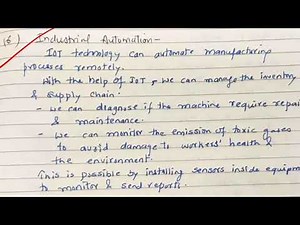 (6) Industrial Automation-
IOT technology can automate manufacturing
processes remotely.
With the help of IOT, we can manage the inventory
& supply chain.
- we can diagnose if the machine require repair
& maintenance.
- we can monitor the emission of toxic gases
to avoid damage to workers' health &
the environment.
This is possible by installing sensors inside equipm
to monitor & send reports.